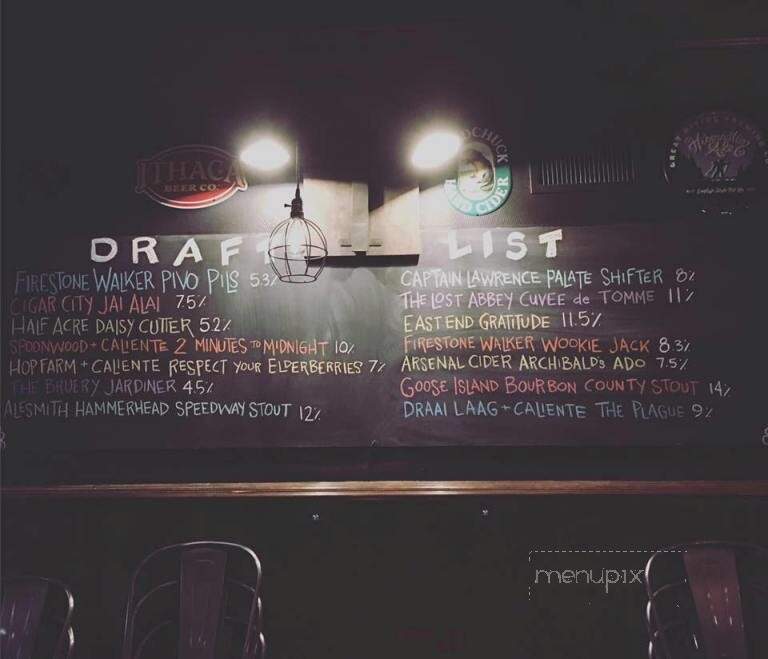 ITHACA
BEER CO.
HARD CIDER
DRAFT LIST
FIRESTONE WALKER PIVO PILS 5.3%
CIGAR CITY JAI ALAI 7.5%
HALF ACRE DAISY CUTTER 5.2%
SPOONWOOD + CALIENTE 2 MINUTES TO MIDNIGHT 10%
HOP FARM + CALIENTE RESPECT YOUR ELDERBERRIES 7%
THE BRUERY JARDINER 4.5%
ALESMITH HAMMERHEAD SPEEDWAY STOUT 12%
CAPTAIN LAWRENCE PALATE SHIFTER 8%
THE LOST ABBEY CUVEE de TOMME 11%
EAST END GRATITUDE 11.5%
FIRESTONE WALKER WOOKIE JACK 8.3%
ARSENAL CIDER ARCHIBALD'S ADO 7.5%
GOOSE ISLAND BOURBON COUNTY STOUT 14%
DRAAI LAAG + CALIENTE THE PLAGUE 9%
menupix